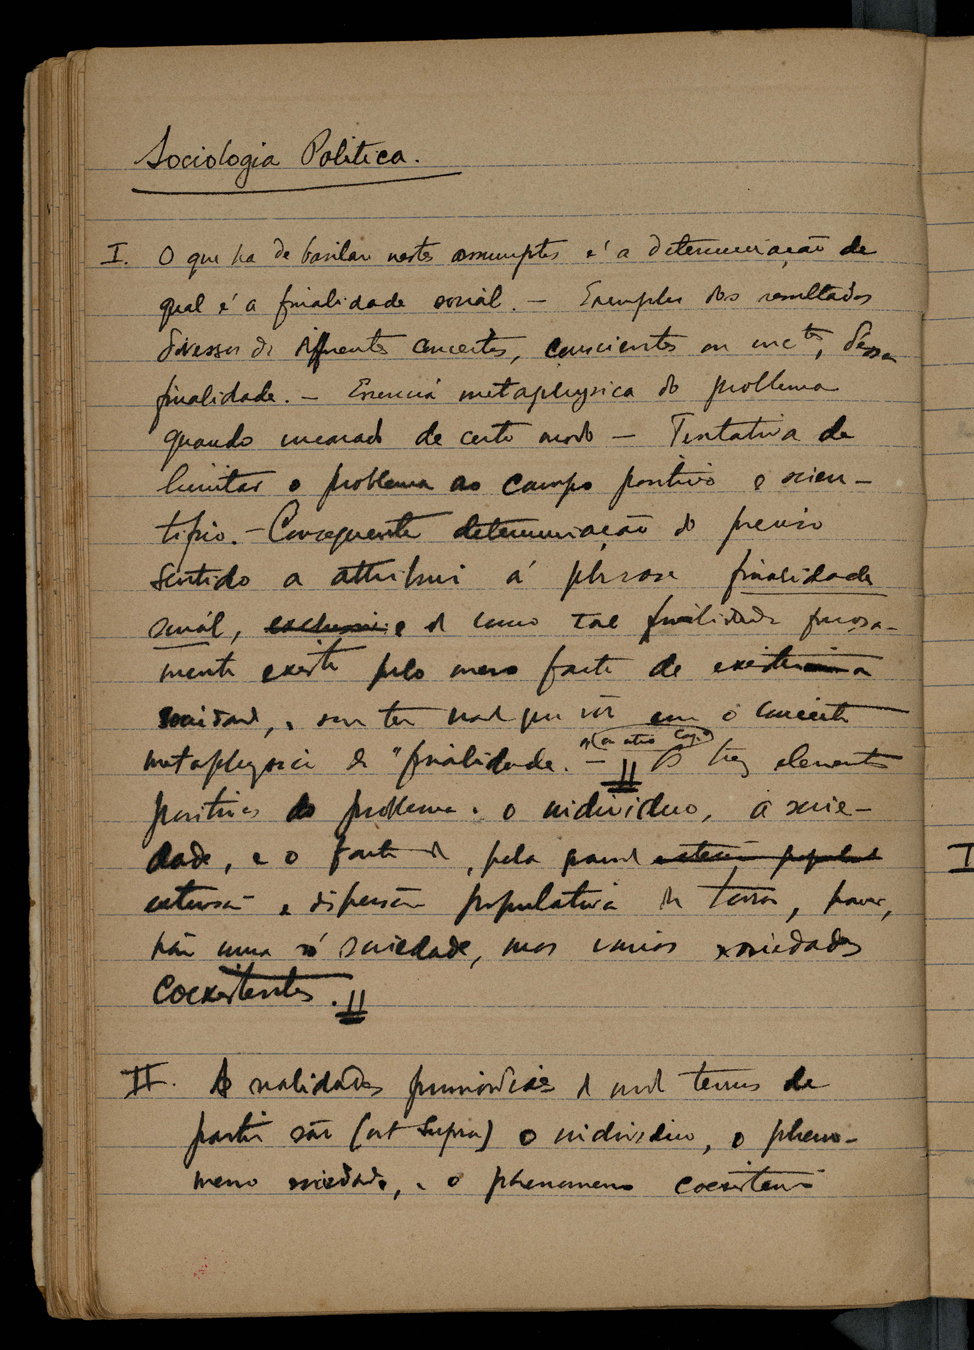 Sociologia Politica.
I. O que ha de basilar nestes assumptos é a determinação de
qual é a finalidade social. — Exemplos dos resultados
diversos de differentes conceitos, conscientes ou inctes, dessa
finalidade. — Essencia metaphysica do problema
quando encarado de certo modo — Tentativa de
limitar o problema ao campo positivo e scien-
tifico. — Consequente determinação do preciso
sentido a attribuir á phrase finalidade
social, e de como tal finalidade forçosa-
mente existe pelo mero facto de existir a
sociedade, e sem ter nada que vêr com o conceito
metaphysico de "finalidade. —
Os trez elementos
positivos do problema: o individuo, a socie-
dade, e o facto de, pela grande
extensão e dispersão populativa da terra, haver,
não uma só sociedade, mas varias sociedades
coexistentes.
II. As realidades primordiaes de onde temos de
partir são (ut supra) o individuo, o pheno-
meno sociedade, e o phenomeno coexistencia
I